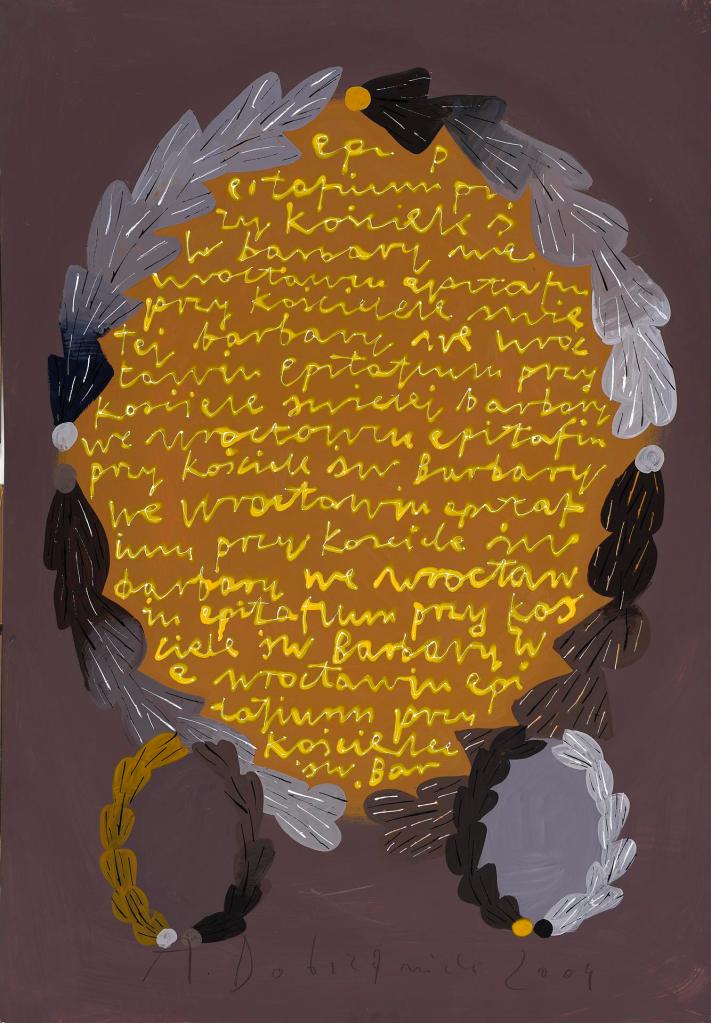 epi p
eitafium prz
ży kościele s
w barbary we
wrocławiu epitafu
przy kościele świę
tej barbary we wroc
ławiu epitafium przy
kościele świetej barbary
we wrocławiu epitafiu
przy kościele św Barbary
we wrocławiu epitaf
ium przy kościele św
barbary we wrocław
iu epitafium przy koś
ciele św Barbary w
e wrocławiu epi
tafium przy
kościele
św. Bar
A. Dobrzaniecki 2004